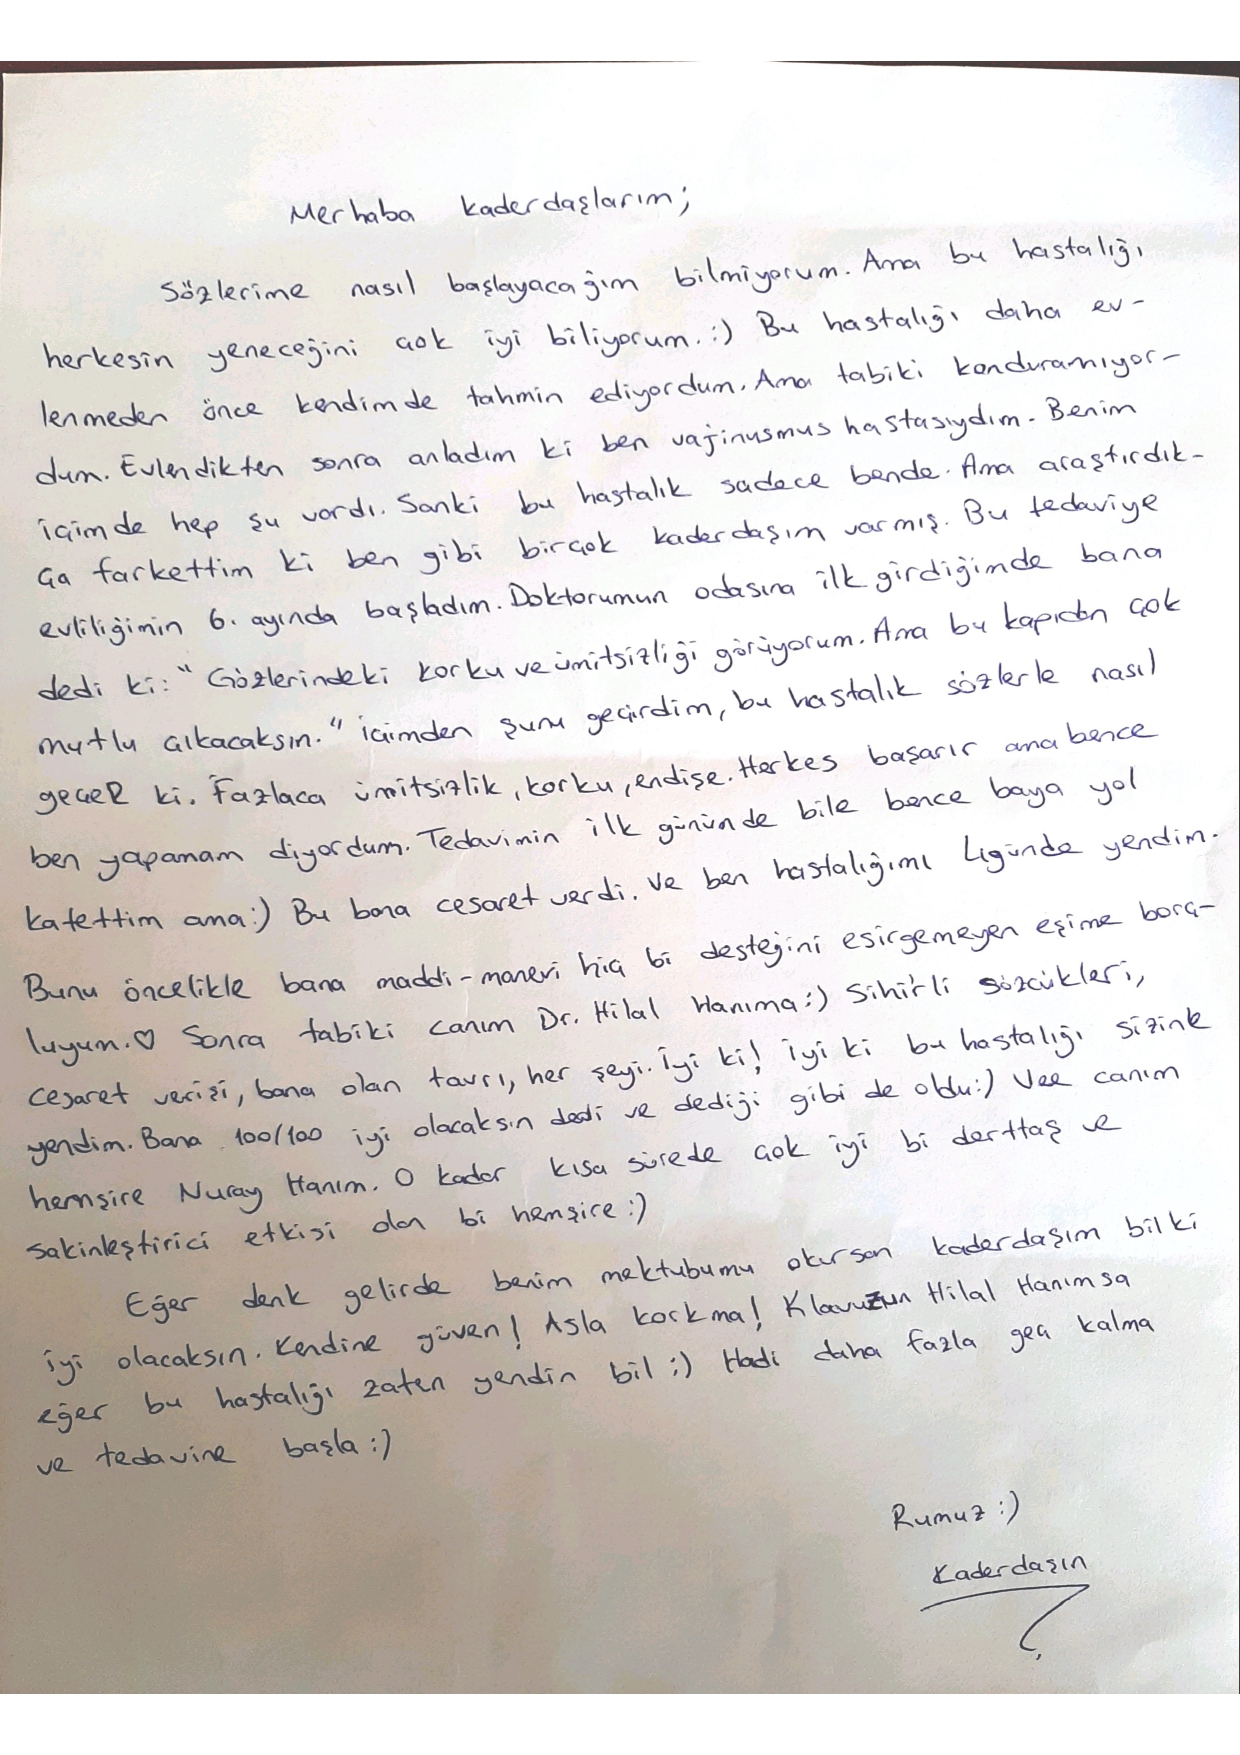 Merhaba kaderdaşlarım;
Sözlerime nasıl başlayacağım bilmiyorum. Ama bu hastalığı
herkesin yeneceğini çok iyi biliyorum. :) Bu hastalığı daha ev-
lenmeden önce kendimde tahmin ediyordum. Ama tabiki konduramıyor-
dum. Evlendikten sonra anladım ki ben vajinusmus hastasıydım. Benim
içimde hep şu vardı. Sanki bu hastalık sadece bende. Ama araştırdık-
ça farkettim ki ben gibi birçok kaderdaşım varmış. Bu tedaviye
evliliğimin 6. ayında başladım. Doktorumun odasına ilk girdiğimde bana
dedi ki: "Gözlerindeki korku ve ümitsizliği görüyorum. Ama bu kapıdan çok
mutlu çıkacaksın." içimden şunu geçirdim, bu hastalık sözlerle nasıl
geçer ki. Fazlaca ümitsizlik, korku, endişe. Herkes başarır ama bence
ben yapamam diyordum. Tedavimin ilk gününde bile bence baya yol
katettim ama :) Bu bana cesaret verdi. Ve ben hastalığımı 4günde yendim.
Bunu öncelikle bana maddi-manevi hiç bi desteğini esirgemeyen eşime borç-
luyum. ♡ Sonra tabiki canım Dr. Hilal Hanıma :) Sihirli sözcükleri,
cesaret verişi, bana olan tavrı, her şeyi. İyi ki! İyi ki bu hastalığı sizinle
yendim. Bana 100/100 iyi olacaksın dedi ve dediği gibi de oldu :) Vee canım
hemşire Nuray Hanım. O kadar kısa sürede çok iyi bi derttaş ve
sakinleştirici etkisi olan bi hemşire :)
Eğer denk gelirde benim mektubumu okursan kaderdaşım bil ki
iyi olacaksın. Kendine güven! Asla korkma! Klavuzun Hilal Hanımsa
eğer bu hastalığı zaten yendin bil :) Hadi daha fazla geç kalma
ve tedavine başla :)
Rumuz :)
Kaderdaşın